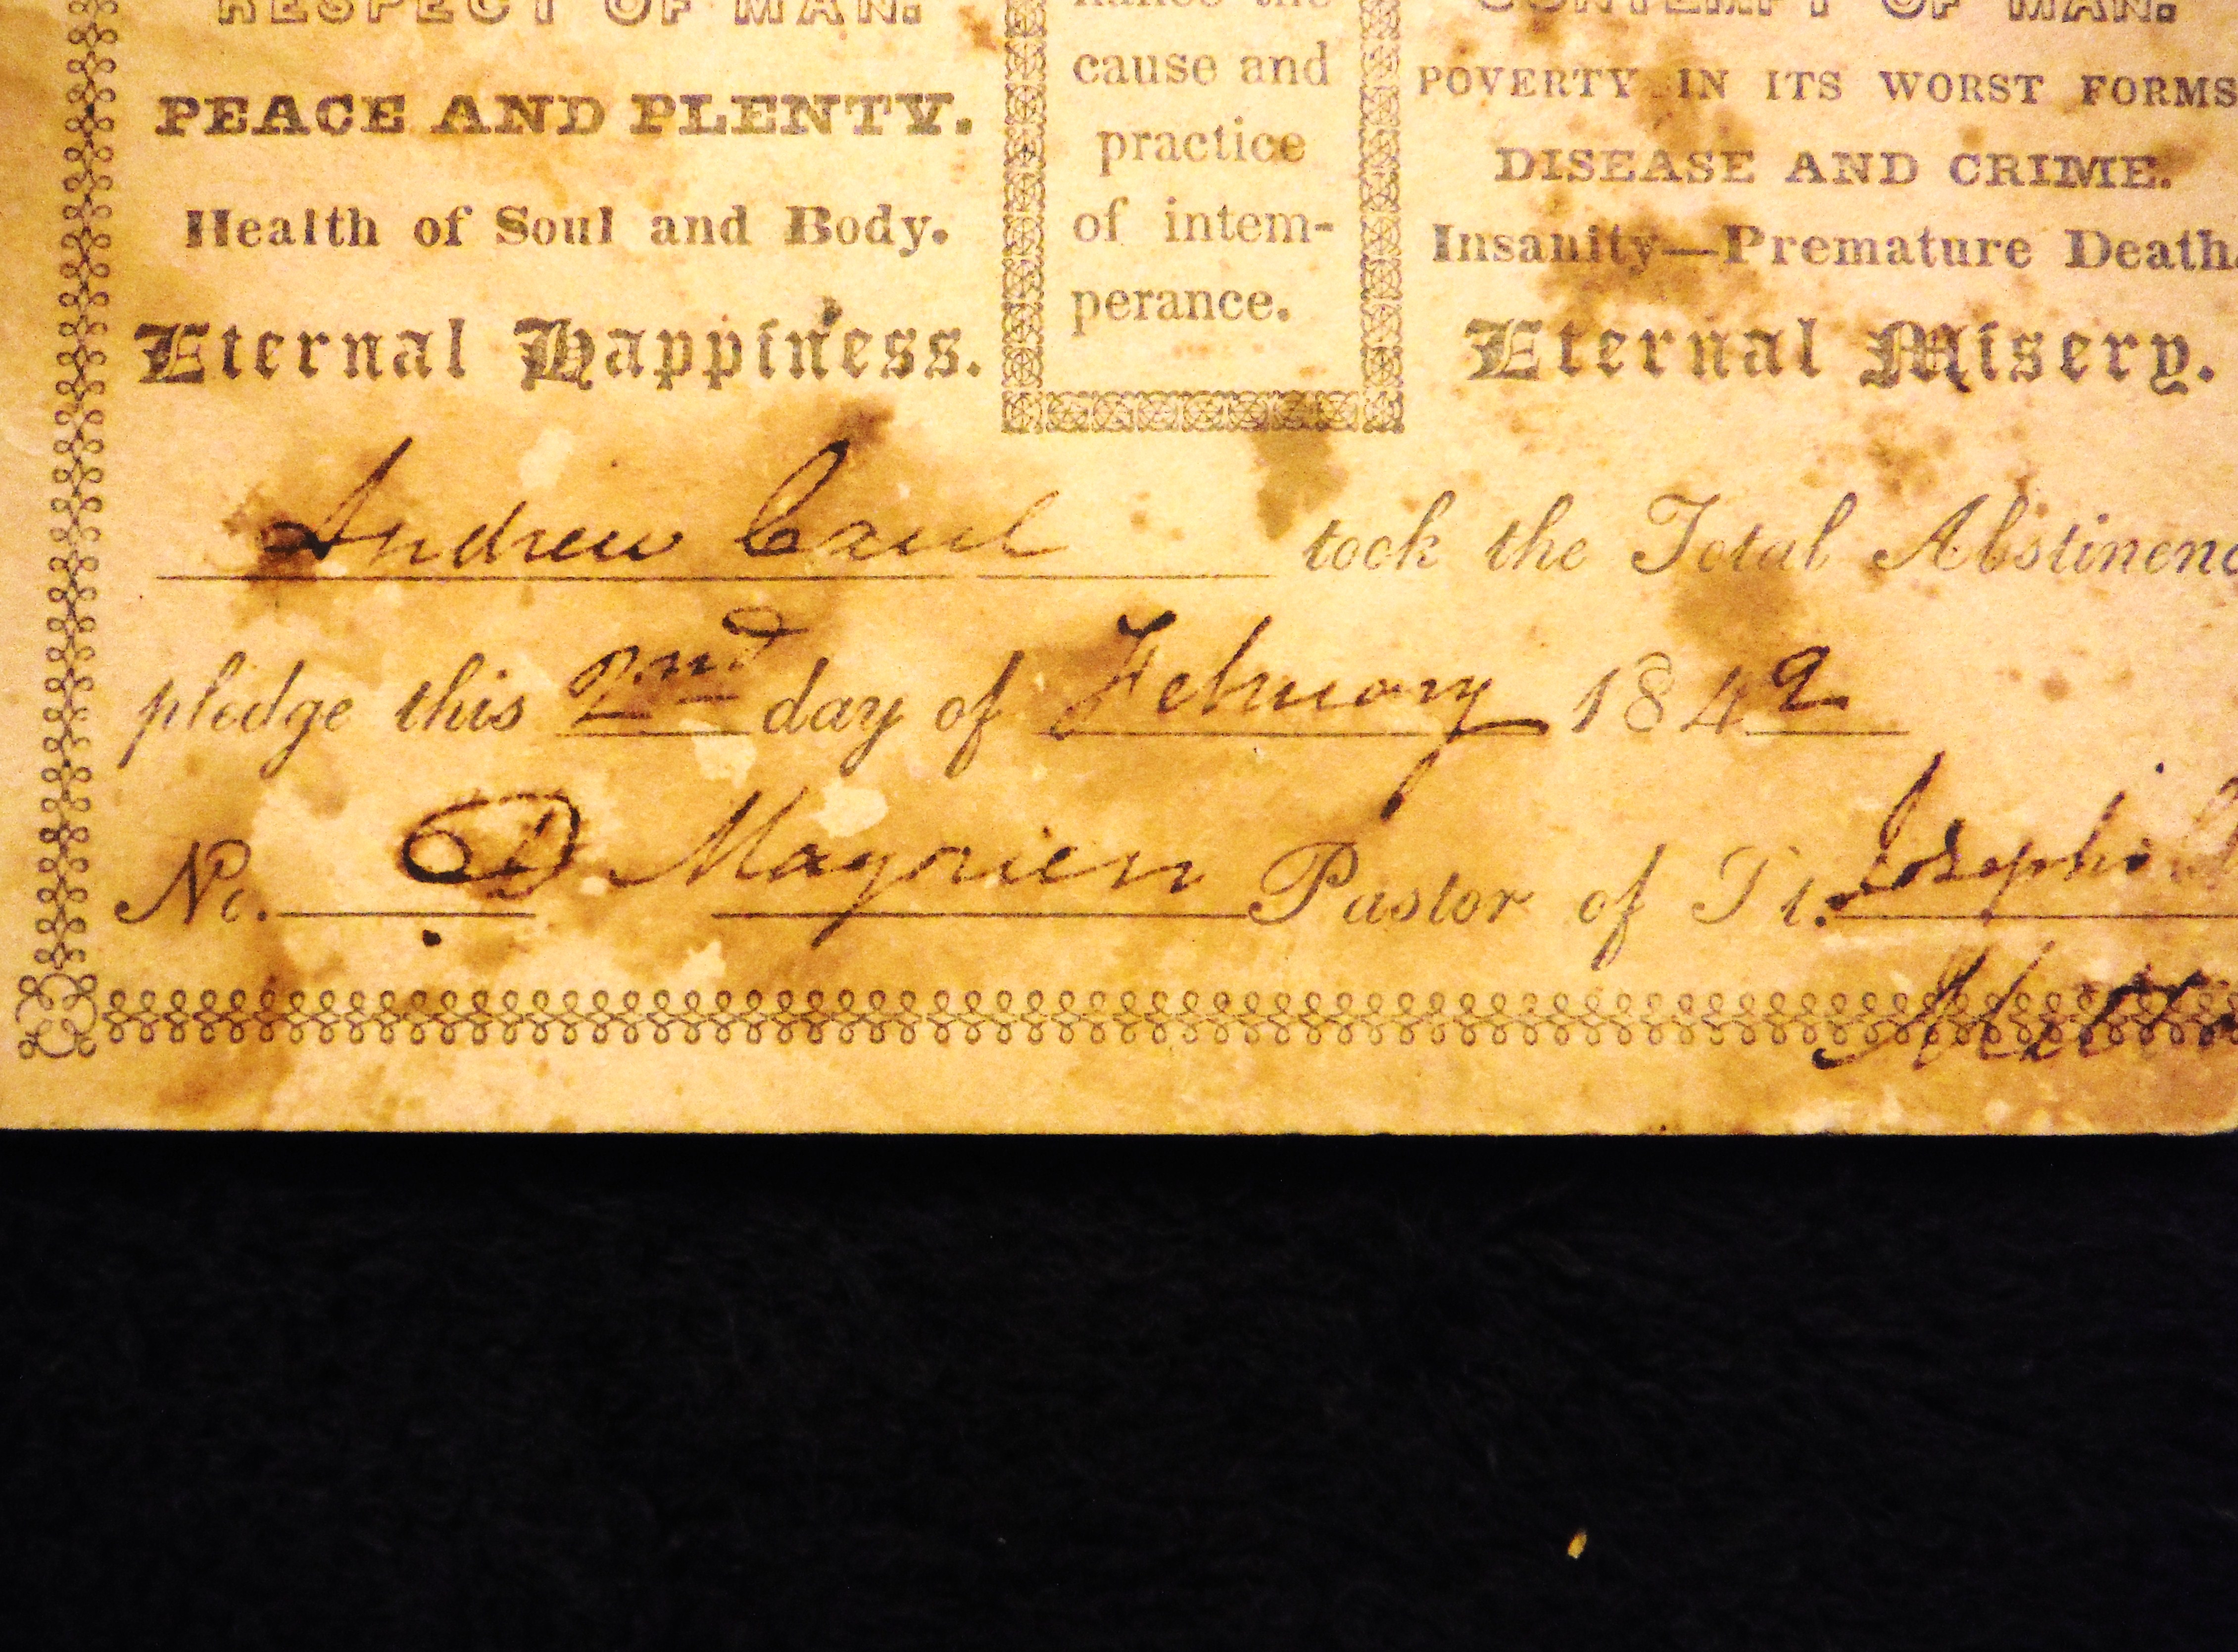 RESPECT OF MAN.
PEACE AND PLENTY.
Health of Soul and Body.
Eternal Happiness.
nance the
cause and
practice
of intem-
perance.
CONTEMPT OF MAN.
POVERTY IN ITS WORST FORMS
DISEASE AND CRIME.
Insanity—Premature Death.
Eternal Misery.
Andrew Caul took the Total Abstinenc
pledge this 2nd day of February 1842
No. D Magnien Pastor of St. Josephs